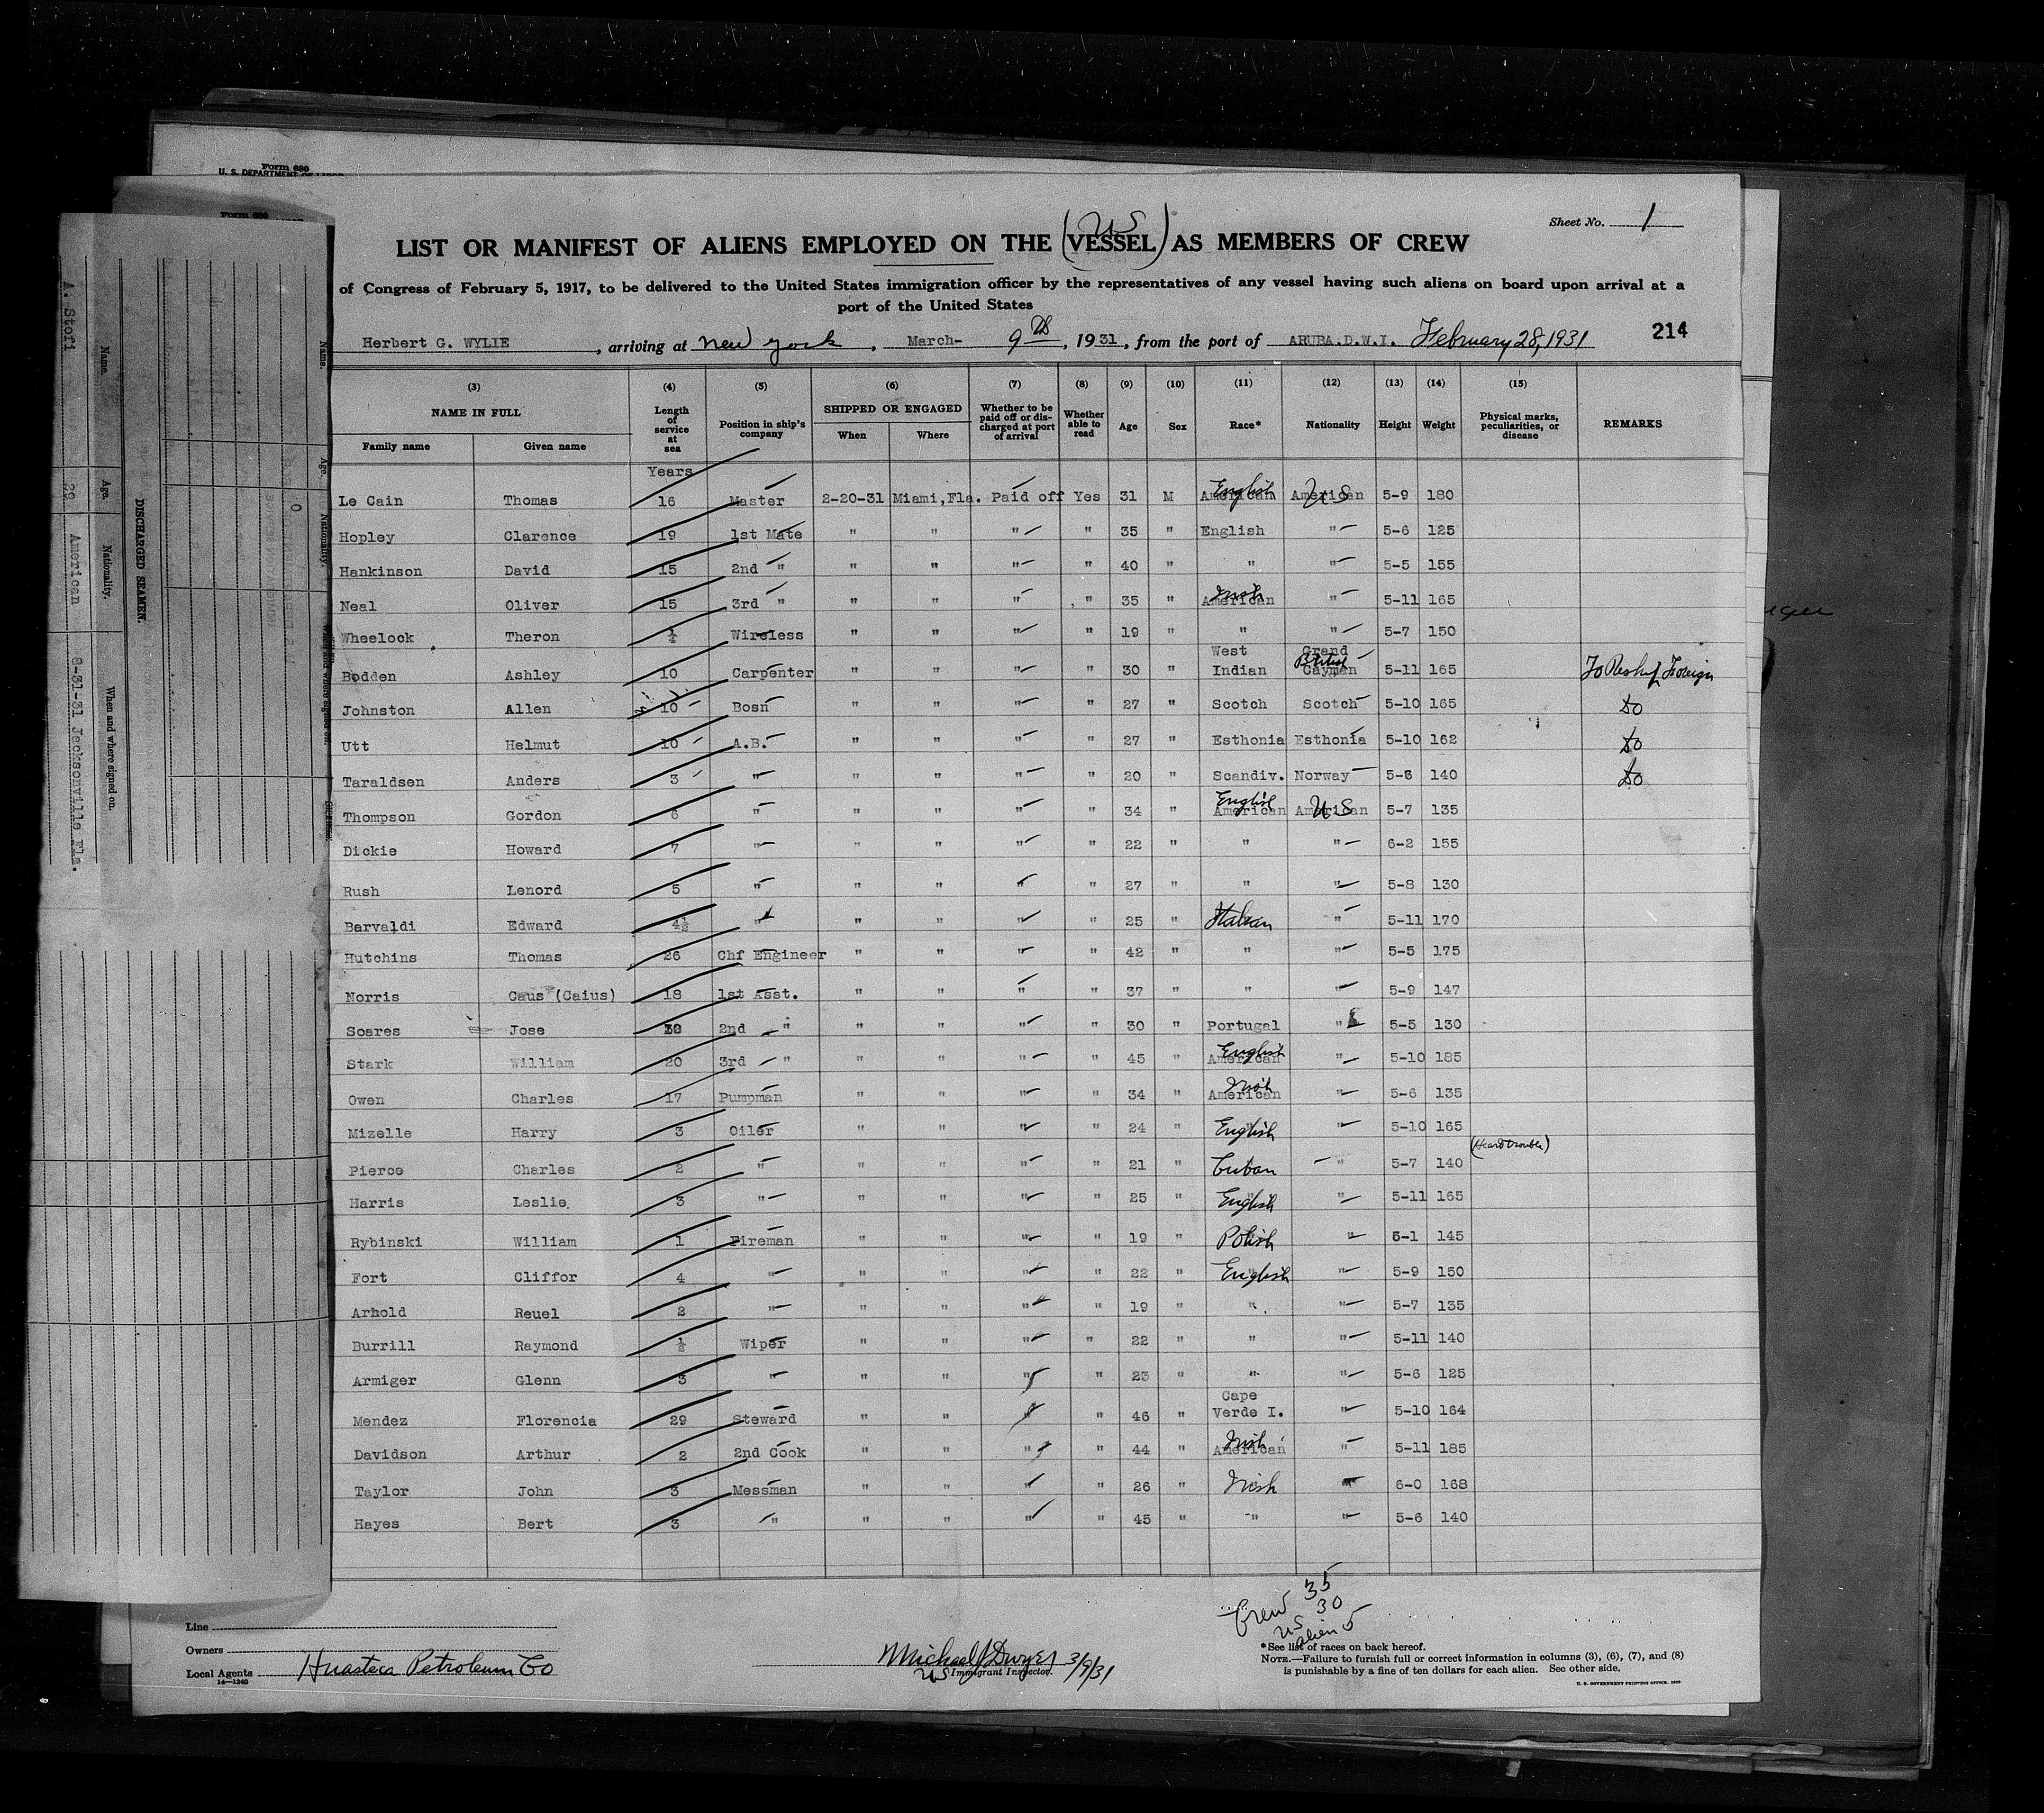 Form 680
U. S. DEPARTMENT OF LABOR
Form 680
Sheet No. 1
(US)
LIST OR MANIFEST OF ALIENS EMPLOYED ON THE (VESSEL) AS MEMBERS OF CREW
of Congress of February 5, 1917, to be delivered to the United States immigration officer by the representatives of any vessel having such aliens on board upon arrival at a
port of the United States
Herbert G. WYLIE, arriving at New York, March- 9th, 1931, from the port of ARUBA.D.W.I. February 28, 1931 214
(3) (4) (5) (6) (7) (8) (9) (10) (11) (12) (13) (14) (15)
NAME IN FULL Length of service at sea Position in ship's company SHIPPED OR ENGAGED Whether to be paid off or discharged at port of arrival Whether able to read Age Sex Race* Nationality Height Weight Physical marks, peculiarities, or disease REMARKS
Family name Given name When Where
Years
Le Cain Thomas 16 Master 2-20-31 Miami,Fla. Paid off Yes 31 M American English American US 5-9 180
Hopley Clarence 19 1st Mate " " " " 35 " English " 5-6 125
Hankinson David 15 2nd " " " " " 40 " " " 5-5 155
Neal Oliver 15 3rd " " " " " 35 " American Irish " 5-11 165
Wheelock Theron ¼ Wireless " " " " 19 " " " 5-7 150
Bodden Ashley 10 Carpenter " " " " 30 " West Indian Grand Cayman British 5-11 165 To Reship Foreign
Johnston Allen 10 Bosn " " " " 27 " Scotch Scotch 5-10 165 do
Utt Helmut 10 A.B. " " " " 27 " Esthonia Esthonia 5-10 162 do
Taraldsen Anders 3 " " " " " 20 " Scandiv. Norway 5-6 140 do
Thompson Gordon 6 " " " " " 34 " American English American US 5-7 135
Dickie Howard 7 " " " " " 22 " " " 6-2 155
Rush Lenord 5 " " " " " 27 " " " 5-8 130
Barvaldi Edward 4½ " " " " " 25 " Italian " 5-11 170
Hutchins Thomas 26 Chf Engineer " " " " 42 " " " 5-5 175
Norris Caus (Caius) 18 1st Asst. " " " " 37 " " " 5-9 147
Soares Jose 2nd " " " " " 30 " Portugal " 5-5 130
Stark William 20 3rd " " " " " 45 " American English " 5-10 185
Owen Charles 17 Pumpman " " " " 34 " American Irish " 5-6 135
Mizelle Harry 3 Oiler " " " " 24 " English " 5-10 165
Pierce Charles 2 " " " " " 21 " Cuban " 5-7 140 (Heart trouble)
Harris Leslie 3 " " " " " 25 " English " 5-11 165
Rybinski William 1 Fireman " " " " 19 " Polish " 6-1 145
Fort Cliffor 4 " " " " " 22 " English " 5-9 150
Arhold Reuel 2 " " " " " 19 " " " 5-7 135
Burrill Raymond ½ Wiper " " " " 22 " " " 5-11 140
Armiger Glenn 3 " " " " " 23 " " " 5-6 125
Mendez Florencia 29 Steward " " " " 46 " Cape Verde I. " 5-10 164
Davidson Arthur 2 2nd Cook " " " " 44 " American Irish " 5-11 185
Taylor John 3 Messman " " " " 26 " Irish " 6-0 168
Hayes Bert 3 " " " " " 45 " " " 5-6 140
Crew 35
US 30
alien 5
Line
Owners
Local Agents Huasteca Petroleum Co
14—1240
Michael J Dwyer 3/9/31
US Immigrant Inspector.
*See list of races on back hereof.
NOTE.—Failure to furnish full or correct information in columns (3), (6), (7), and (8)
is punishable by a fine of ten dollars for each alien. See other side.
U. S. GOVERNMENT PRINTING OFFICE
DISCHARGED SEAMEN.
Name. Age. Nationality. When and where signed on.
A. Stofl 29 American 8-31-31 Jacksonville Fla.